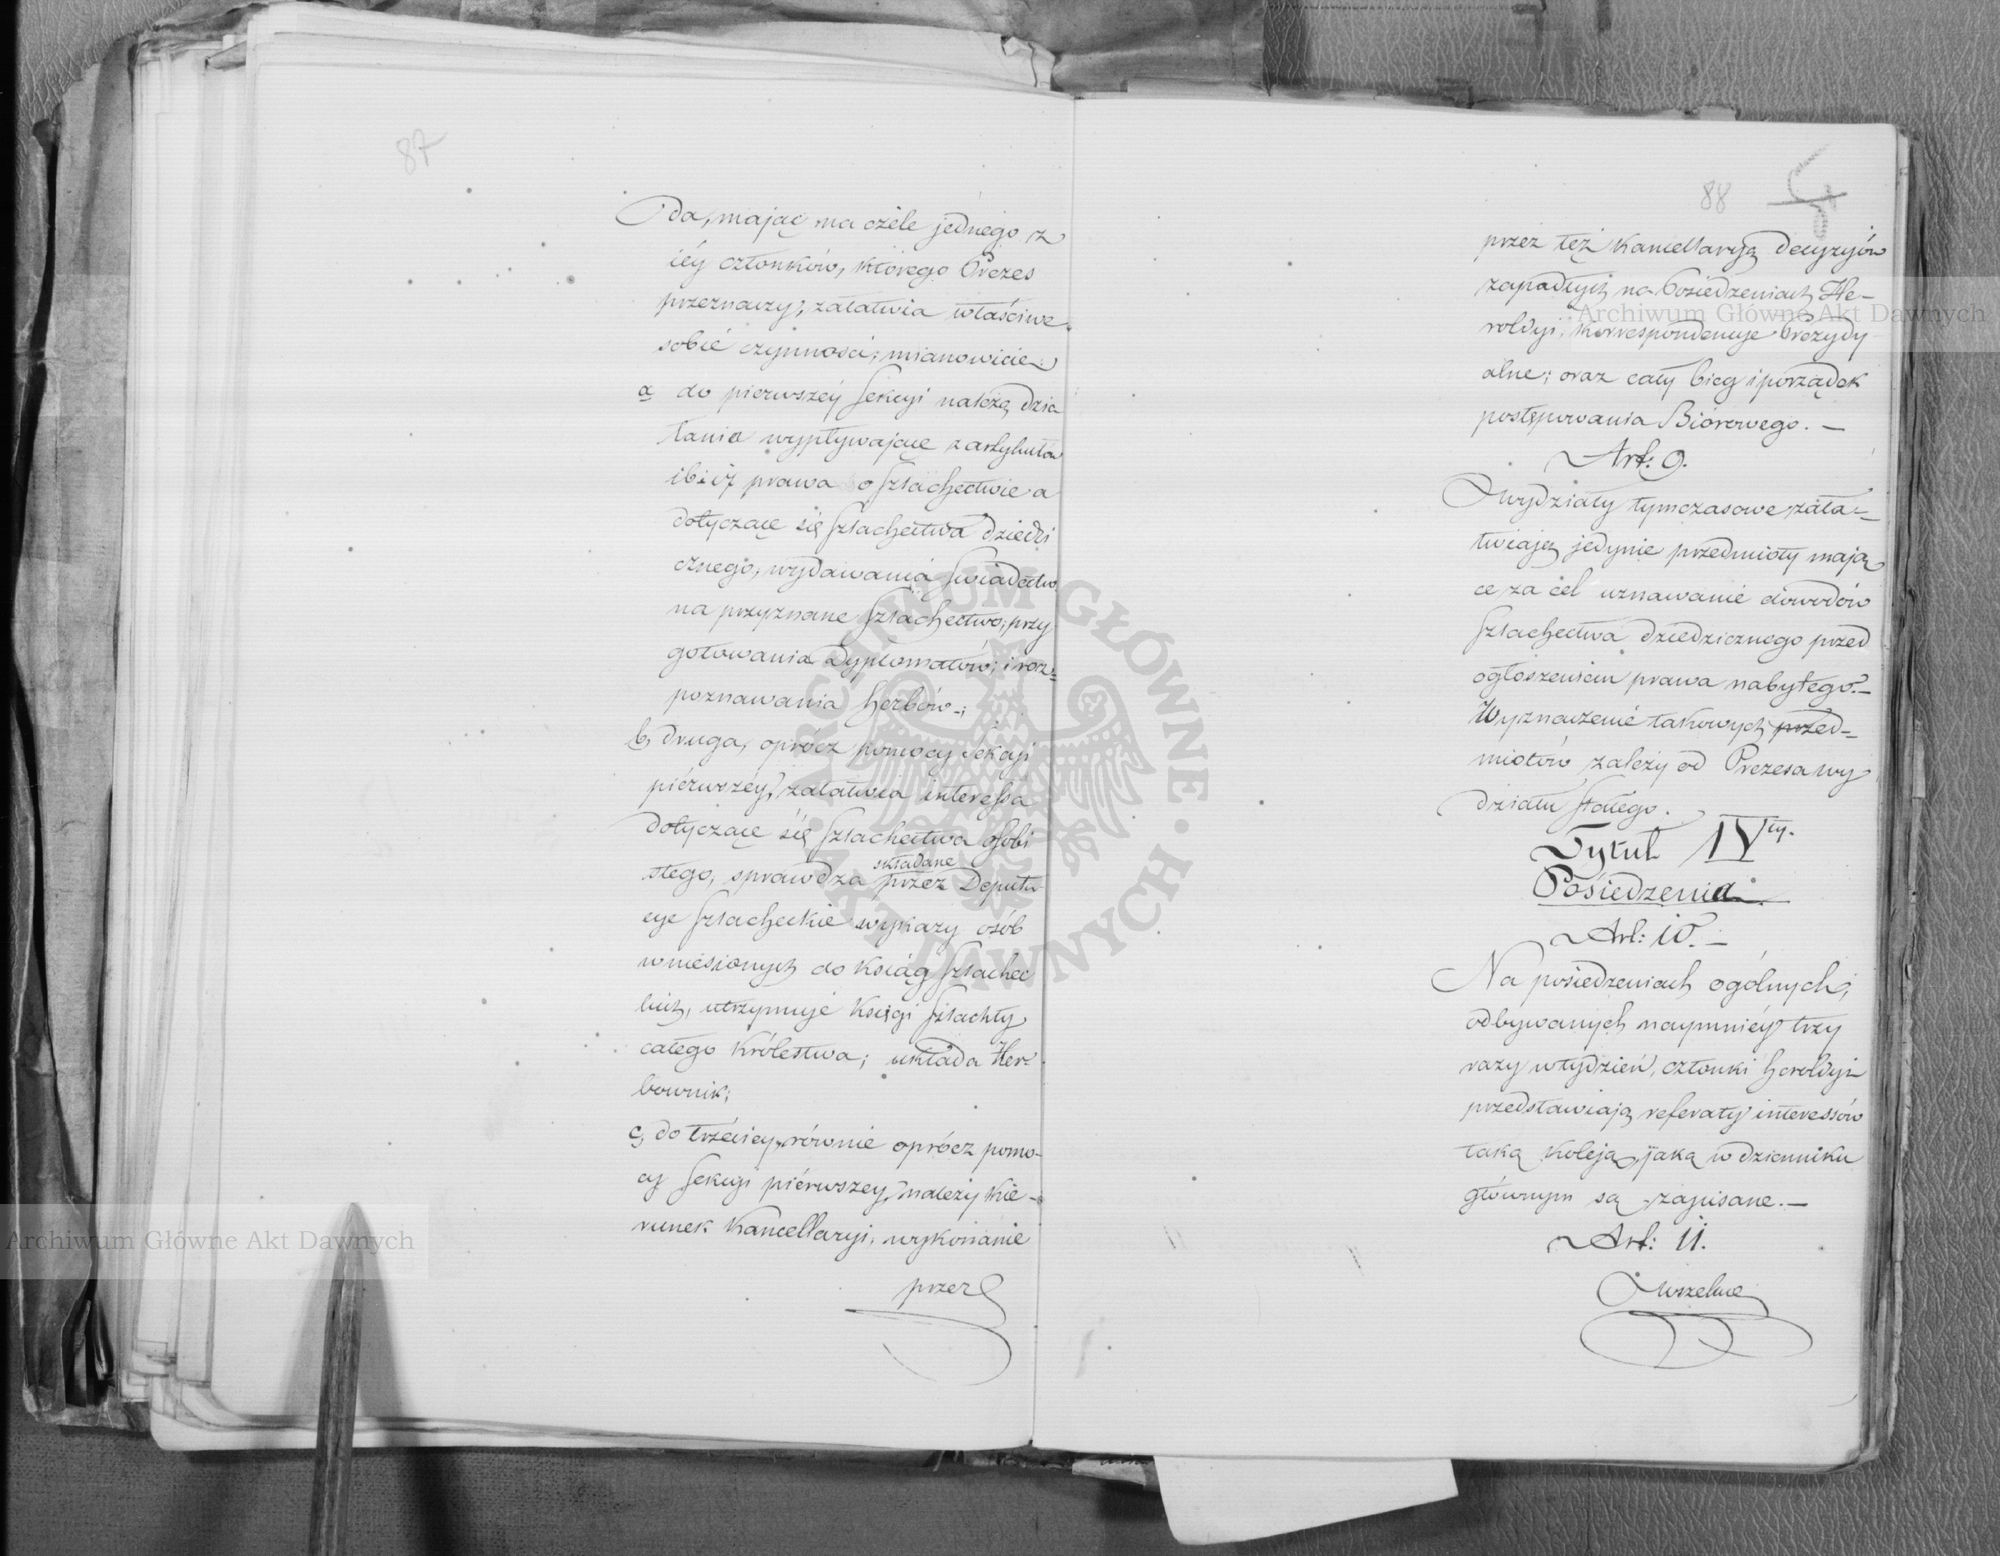 87
da, mając na czele jednego z
iéy członków, którego Prezes
przeznaczy, załatwia właściwe
sobie czynności; mianowicie:
a do pierwszéy Sekcyi należą dzia
łania wypływające z artykułów
16 i 17 prawa o Szlachectwie a
dotyczące się Szlachectwa dziedzi
cznego, wydawania Swiadectw
na przyznane Szlachectwo, przy
gotowania Dyplomatów; i roz=
poznawania Herbów.;
b, druga, oprócz pomocy Sekcyi
piérwszéy, załatwia interessa
dotyczące się Szlachectwa osobi
składane
stego, sprawdza przez Deputa-
cye Szlacheckie wykazy osób
wniesionych do Ksiąg Szlachec
kich, utrzymuje Księgi Szlachty
całego Królestwa; układa Her-
bownik;
c, do trzeciey, równie oprócz pomo-
cy Sekcyi piérwszey, należy kie-
runek Kancellaryi, wykonanie
przez
88
przez też Kancellaryą decyzyów
zapadłych na Posiedzeniach He-
roldyi, korrespondencye Prezydy-
alne; oraz cały bieg i porządek
postępowania Biórowego. —
Art: 9.
Wydziały tymczasowe zała=
twiają jedynie przedmioty mają
ce za cel uznawanie dowodów
Szlachectwa dziedzicznego przed
ogłoszeniem prawa nabytego.—
Wyznaczenie takowych przed-
miotów zależy od Prezesa wy
działu stałego.
Tytuł IVty.
Posiedzenia.
Art: 10. —
Na posiedzeniach ogólnych,
odbywanych naymniéy trzy
razy w tydzień, członki Heroldyi
przedstawiają referaty interessów
taką koleją, jaką w dzienniku
głównym są zapisane. —
Art: 11.
Wszelkie
Archiwum Główne Akt Dawnych
Archiwum Główne Akt Dawnych
ARCHIWUM GŁÓWNE · AKT DAWNYCH ·